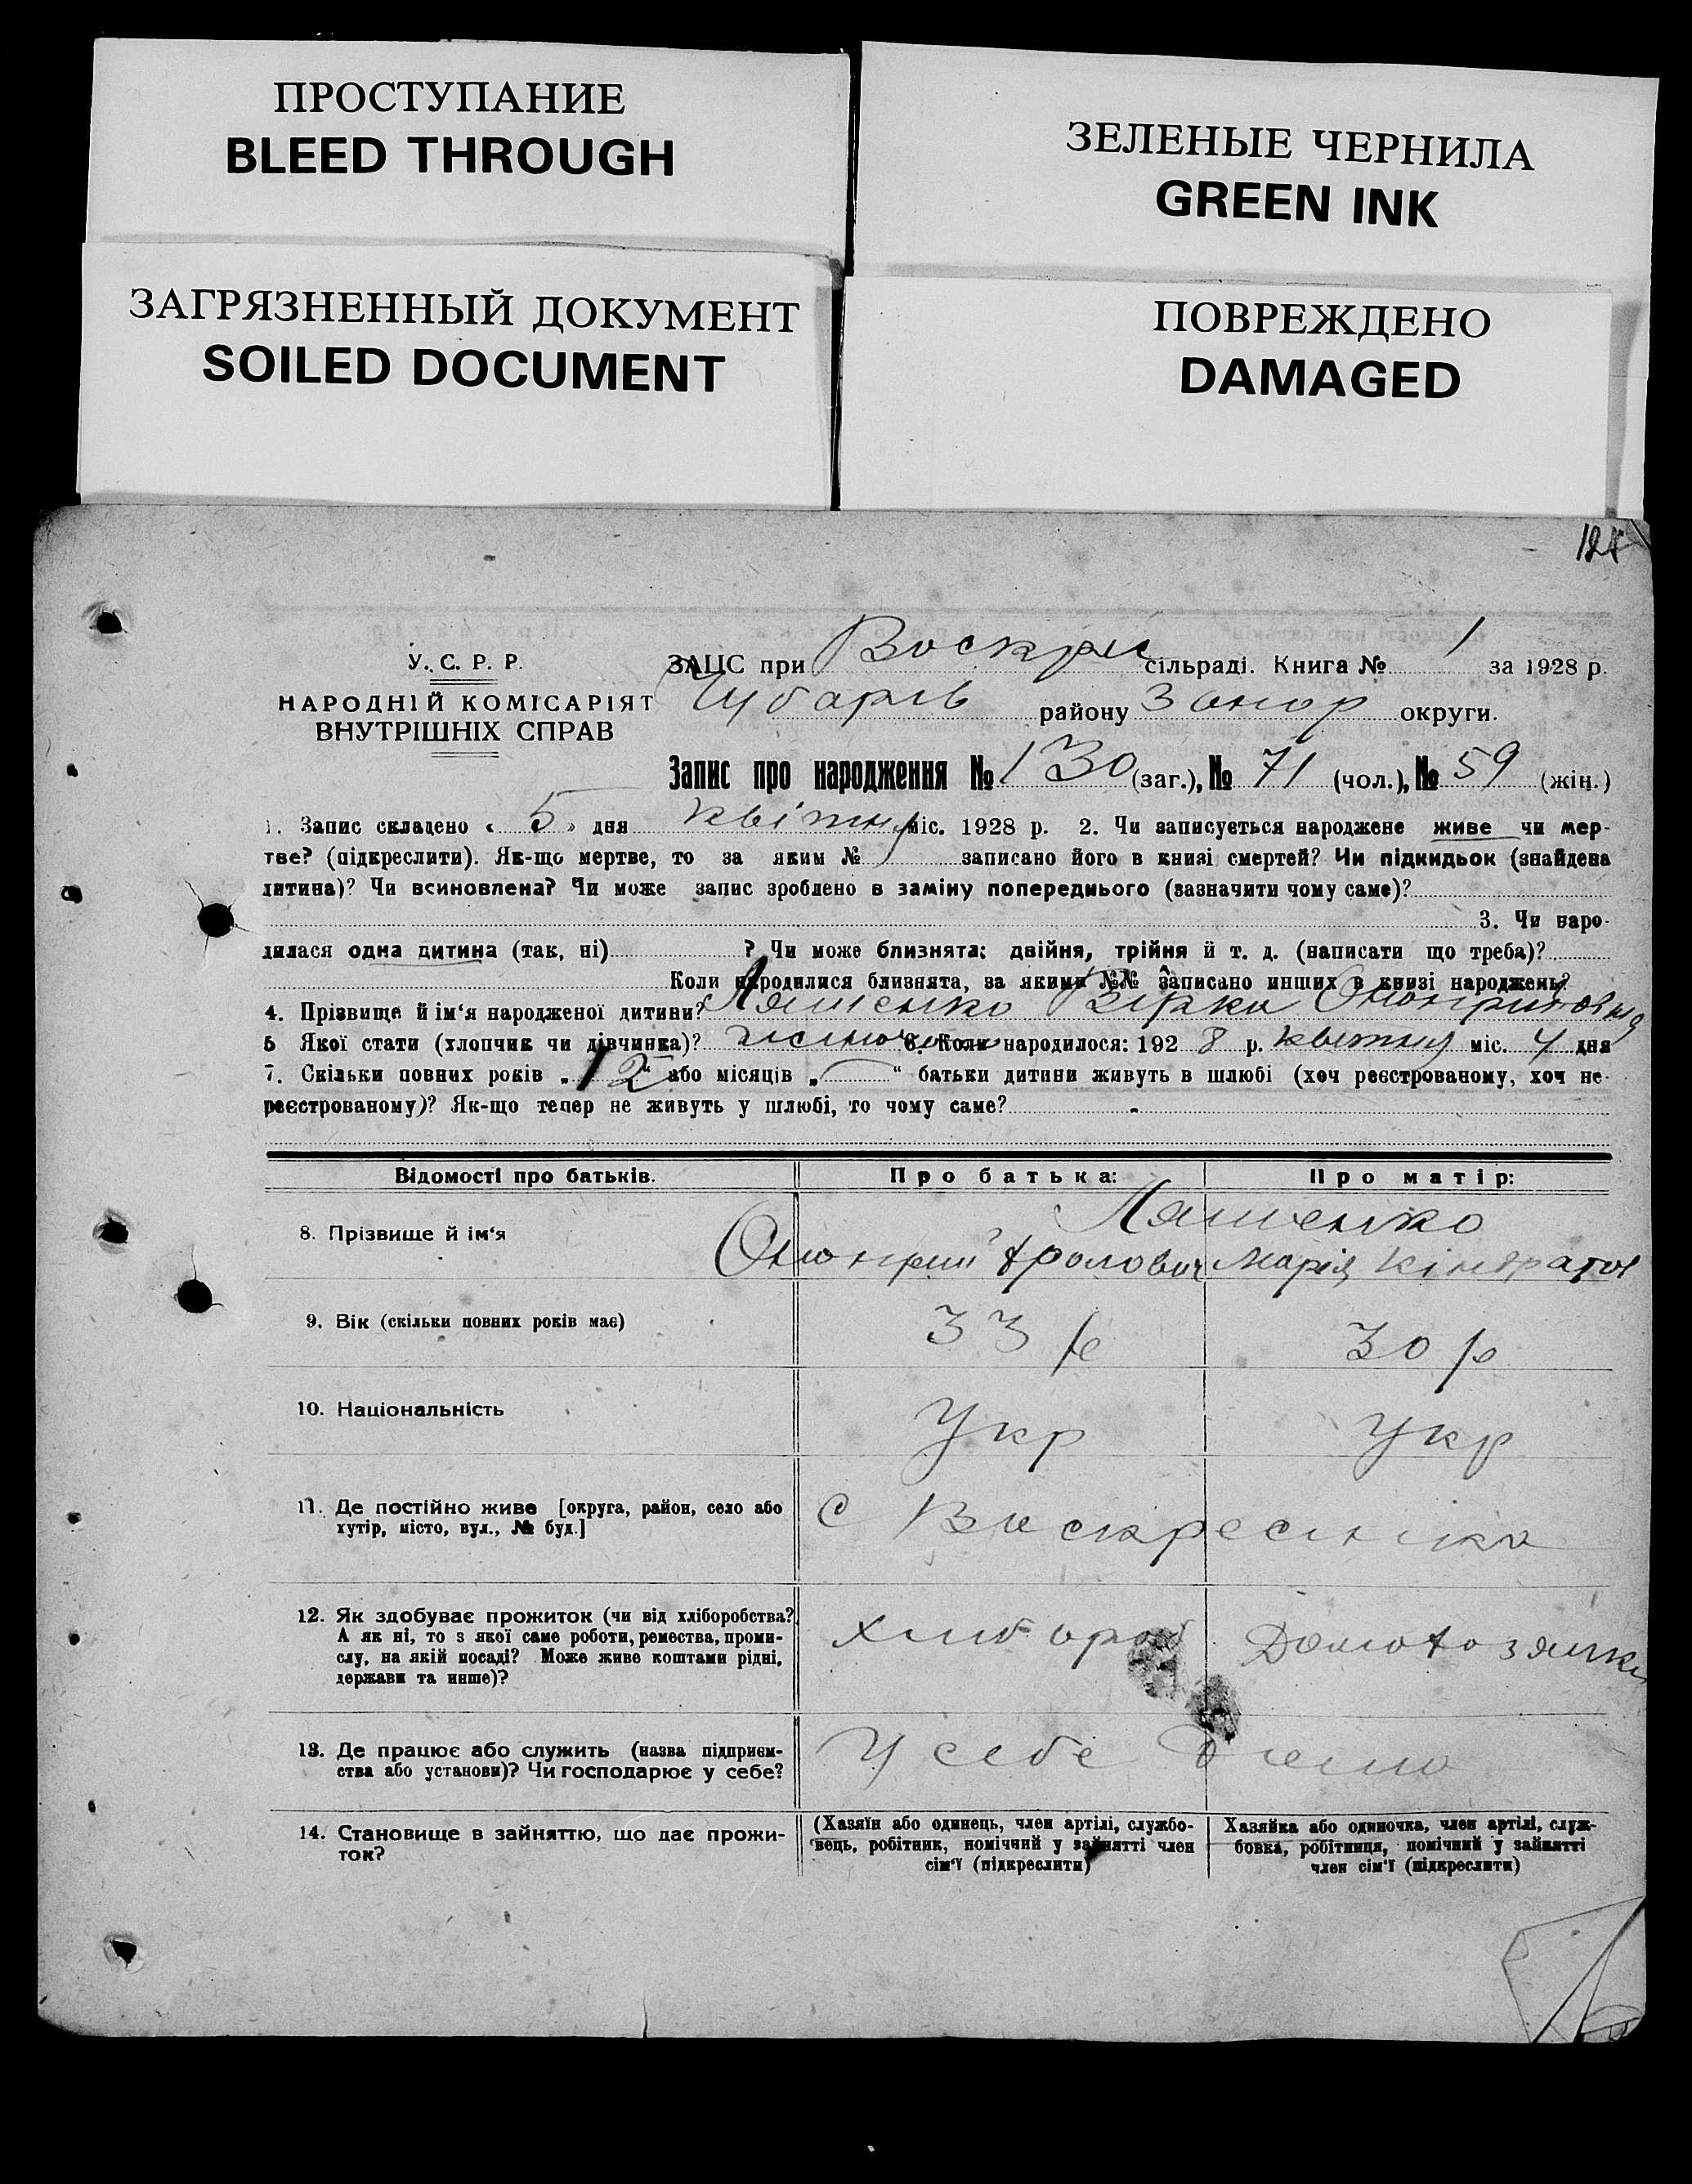 ПРОСТУПАНИЕ
BLEED THROUGH
ЗЕЛЕНЫЕ ЧЕРНИЛА
GREEN INK
ЗАГРЯЗНЕННЫЙ ДОКУМЕНТ
SOILED DOCUMENT
ПОВРЕЖДЕНО
DAMAGED
У. С. Р. Р.
НАРОДНІЙ КОМІСАРІЯТ
ВНУТРІШНІХ СПРАВ
ЗАЦС при Воскрес сільраді. Книга № 1 за 1928 р.
Чубарів району Запор округи.
Запис про народження № 130 (заг.), № 71 (чол.), № 59 (жін.)
1. Запис складено « 5 » дня квітня міс. 1928 р. 2. Чи записується народжене живе чи мер-
тве? (підкреслити). Як-що мертве, то за яким № записано його в книзі смертей? Чи підкидьок (знайдена
дитина)? Чи всиновлена? Чи може запис зроблено в заміну попереднього (зазначити чому саме)?
3. Чи наро-
дилася одна дитина (так, ні) ? Чи може близнята: двійня, трійня й т. д. (написати що треба)?
Коли народилися близнята, за якими №№ записано инших в книзі народжень?
4. Прізвище й ім'я народженої дитини? Ляшенко Вірка
5 Якої стати (хлопчик чи дівчинка)? жіночого 6. Коли народилося: 192 8 р. квітня міс. 4 дня
7. Скільки повних років „ 12 “ або місяців „ “ батьки дитини живуть в шлюбі (хоч реєстрованому, хоч не-
реєстрованому)? Як-що тепер не живуть у шлюбі, то чому саме?
Відомості про батьків. Про батька: Про матір:
8. Прізвище й ім'я
Ляшенко
Онопрій Фролович Марія Кіндратов
9. Вік (скільки повних років має) 33 р 30 р
10. Національність Укр Укр
11. Де постійно живе [округа, район, село або
хутір, місто, вул., № буд.]
С Васкресинка
12. Як здобуває прожиток (чи від хліборобства?
А як ні, то з якої саме роботи, ремества, проми-
слу, на якій посаді? Може живе коштами рідні,
держави та инше)?
Хлибороб Домохозяйка
13. Де працює або служить (назва підприєм-
ства або установи)? Чи господарює у себе?
У себе
14. Становище в зайняттю, що дає прожи-
ток?
(Хазяїн або одинець, член артілі, службо-
вець, робітник, помічний у зайнятті член
сім'ї (підкреслити)
Хазяйка або одиночка, член артілі, служ-
бовка, робітниця, помічний у зайнятті
член сім'ї (підкреслити)